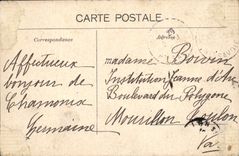 CARTE POSTALE
Correspondance
Adresse
Affectueux
bonjour de
Chamonix
Germaine
madame Boivin
Institution Jeanne d'Arc
Boulevard du Polygone
Mourillon Toulon
Var